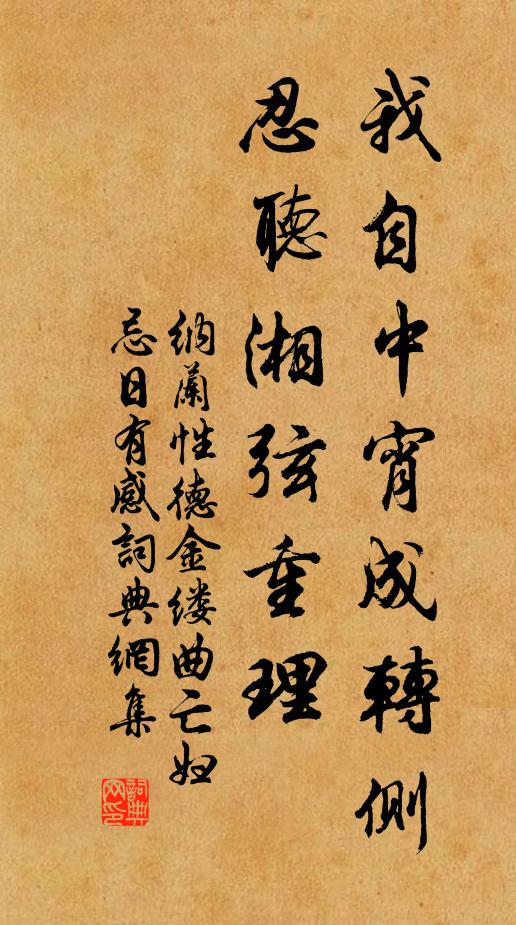 我自中宵成轉側
忍聽湘弦重理
納蘭性德金缕曲亡妇
忌日有感詞典網集
詞典
网印